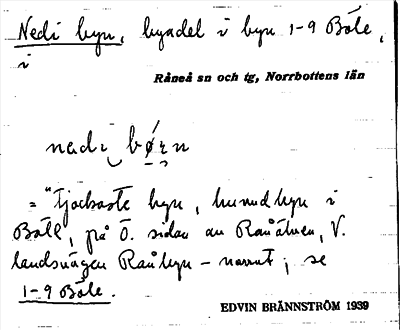 Nedi byn, byadel i byn 1-9 Böle,
i
Råneå sn och tg, Norrbottens län
nadi bǿrn
= "tjockaste byn, huvudbyn i
Böle, på Ö. sidan av Råneälven, V.
landsvägen Råbyn - narrut; se
1-9 Böle.
EDVIN BRÄNNSTRÖM 1939